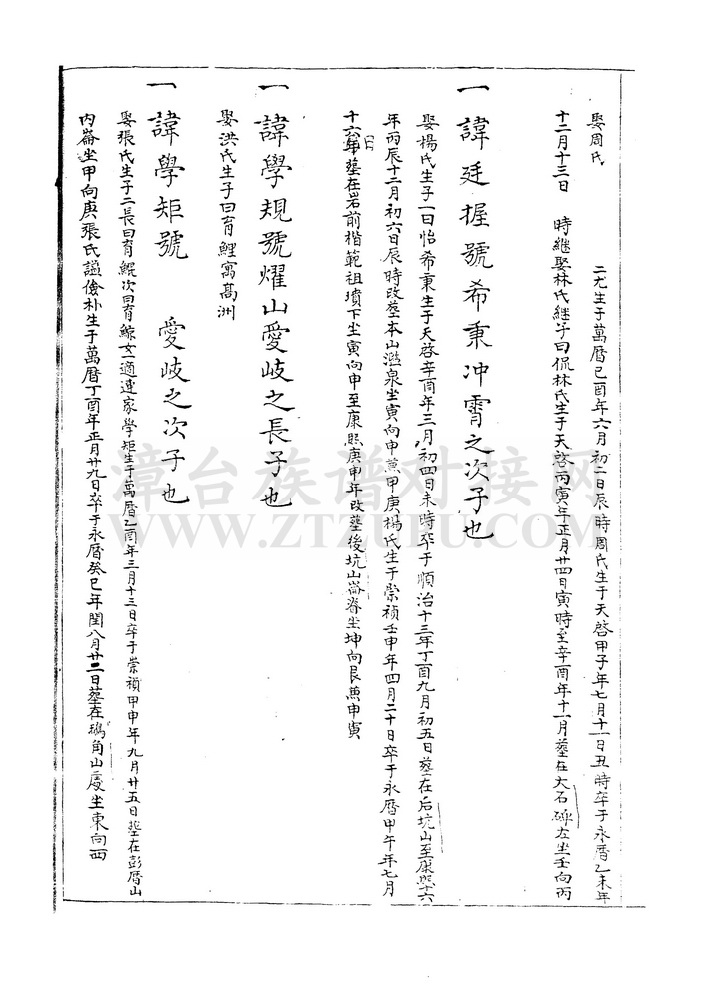 娶周氏　二尤生于萬曆己酉年六月初二日辰時周氏生于天啓甲子年七月十一日丑時卒于永曆乙未年
十二月十三日　時継娶林氏継子曰侃林氏生于天啓丙寅年正月廿四日寅時至辛酉年十一月塟在大石碑左坐壬向丙
一諱廷握號希秉冲霄之次子也
娶楊氏生子一曰怡希秉生于天啓辛酉年三月初四日未時卒于順治十三年丁酉九月初五日塟在后坑山至康熙十六
年丙辰十二月初六日辰時改塟本山濫泉坐寅向申兼甲庚楊氏生于崇禎壬申年四月二十日卒于永曆甲午年七月
十六日塟在岩前楷範祖墳下坐寅向申至康熙庚申年改塟後坑山崙脊坐坤向艮兼申寅
一諱學規號燿山愛歧之長子也
娶洪氏生子曰育鯉寓髙洲
一諱學矩號　愛歧之次子也
娶張氏生子二長曰育鯤次曰育鯨女一適連家學矩生于萬曆乙酉年三月十三日卒于崇禎甲申年九月廿五日塟在彭厝山
内崙坐甲向庚張氏謚儉朴生于萬曆丁酉年正月廿九日卒于永曆癸巳年閏八月廿二日塟在鴻角山䖍坐東向西
漳台族谱对接网
WWW.ZTZUPU.COM